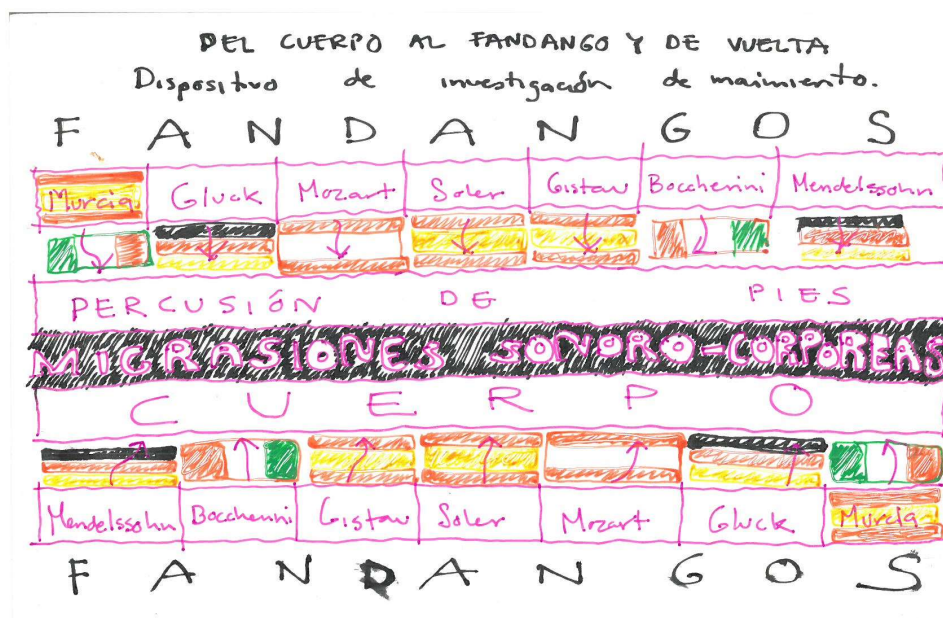 DEL CUERPO AL FANDANGO Y DE VUELTA
Dispositivo de investigación de maimiento.
F A N D A N G O S
Murcia Gluck Mozart Soler Gistau Boccherini Mendelssohn
PERCUSIÓN DE PIES
MIGRASIONES SONORO-CORPOREAS
C U E R P O
Mendelssohn Boccherini Gistau Soler Mozart Gluck Murcia
F A N D A N G O S